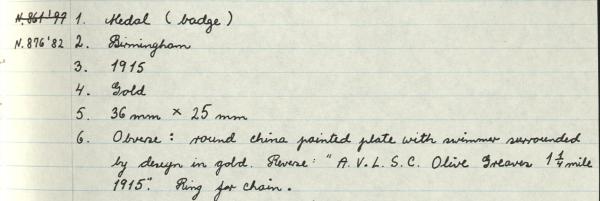 N.861'97 1. Medal (badge)
N.876'82 2. Birmingham
3. 1915
4. Gold
5. 36mm × 25 mm
6. Obverse: round china painted plate with swimmer surrounded
by design in gold. Reverse: "A.V.L.S.C. Olive Greaves 1 1/4 mile
1915". Ring for chain.